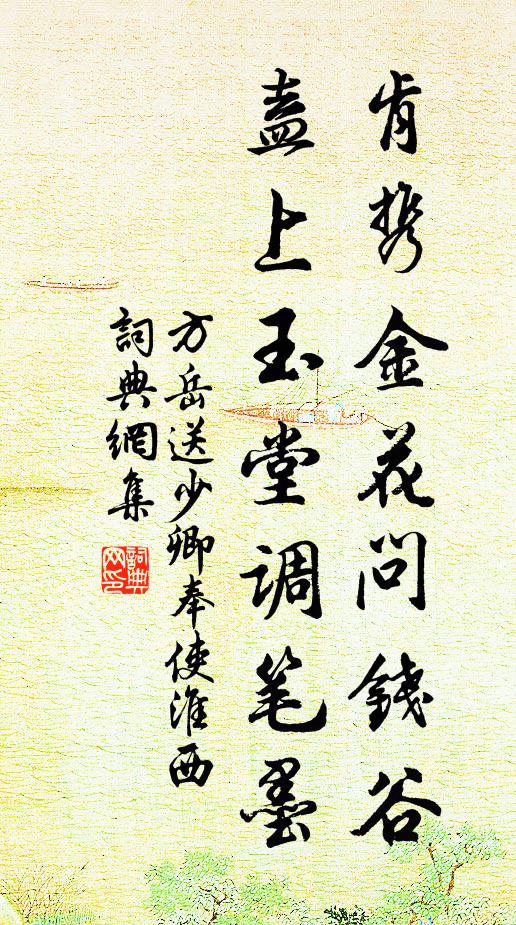 肯携金花问錢谷
盍上玉堂调笔墨
方岳送少卿奉使淮西
詞典網集
詞典网印